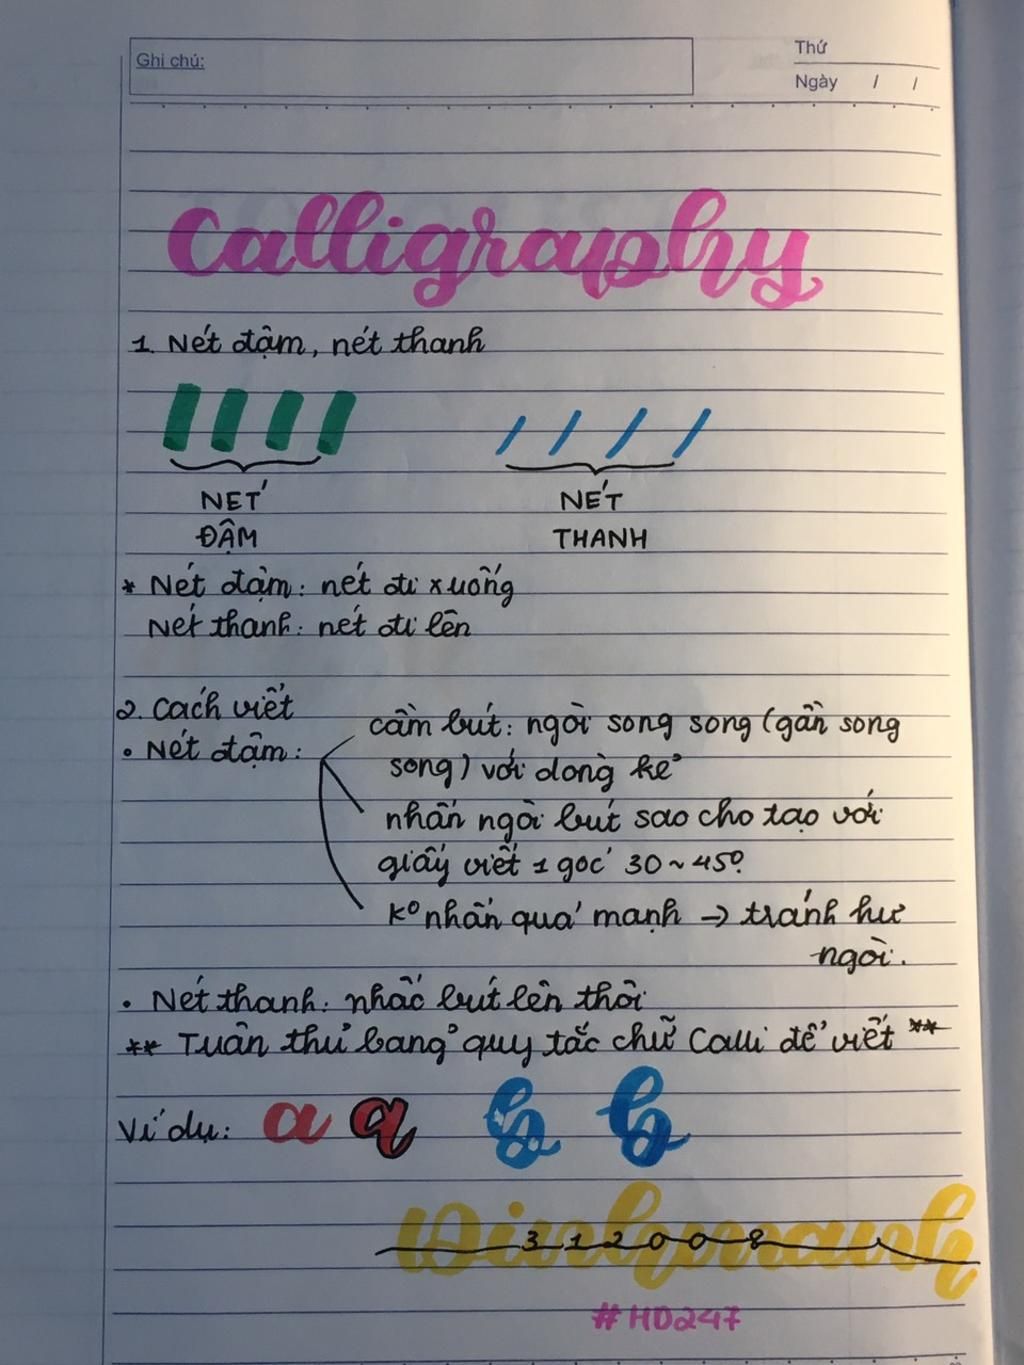 Ghi chú:
Thứ
Ngày / /
Calligraphy
1. Nét đậm, nét thanh
NÉT ĐẬM
NÉT THANH
* Nét đậm: nét đi xuống
Nét thanh: nét đi lên
2. Cách viết
• Nét đậm:
cầm bút: ngòi song song (gần song
song) với dòng kẻ
nhấn ngòi bút sao cho tạo với
giấy viết 1 góc 30 ~ 45º.
kº nhấn quá mạnh → tránh hư
ngòi.
• Nét thanh: nhấc bút lên thôi
** Tuân thủ bảng quy tắc chữ Calli để viết **
Ví dụ: a a b b
312008
#HD247